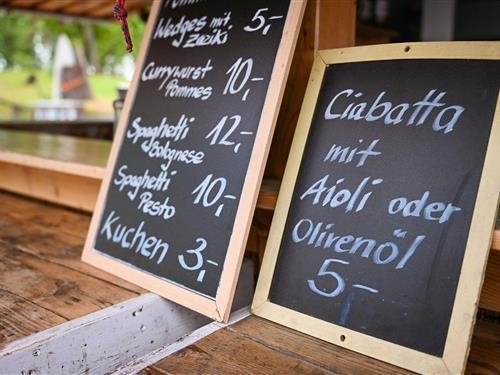 Wedges mit 5,-
Zaziki
Currywurst 10,-
Pommes
Spaghetti 12,-
Bolognese
Spaghetti 10,-
Pesto
Kuchen 3,-
Ciabatta
mit
Aioli oder
Olivenöl
5,-